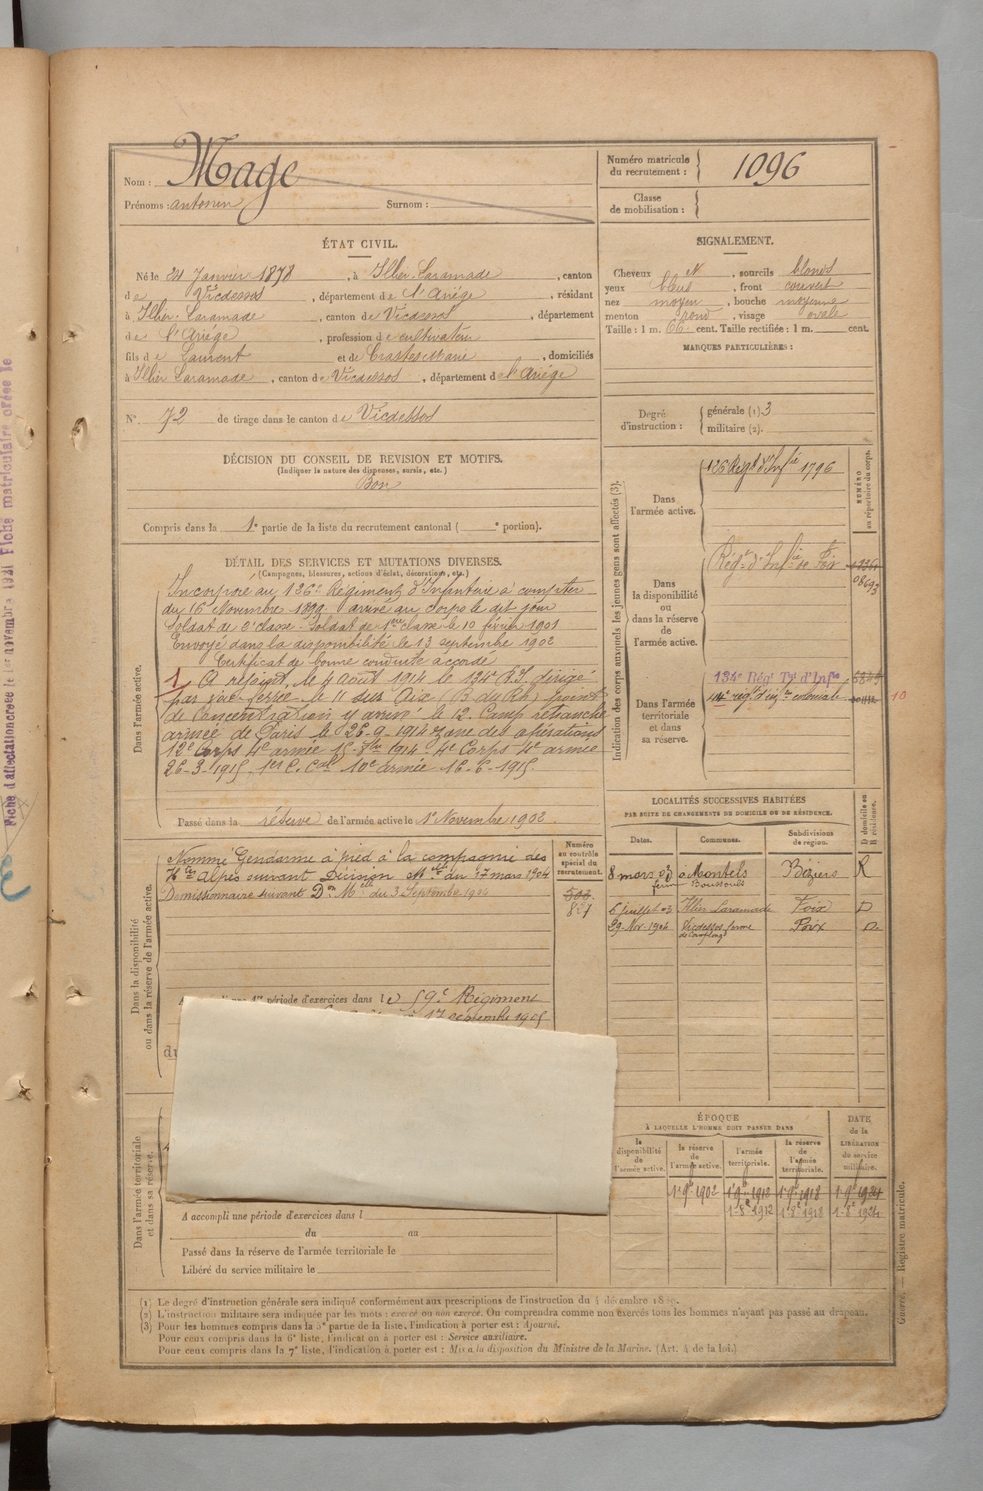 Nom : Mage
Prénoms : antonin Surnom :
Numéro matricule du recrutement : 1096
Classe de mobilisation :
ÉTAT CIVIL.
Né le 24 Janvier 1878, à Illier-Laramade, canton
de Vicdessos, département de l'Ariége, résidant
à Illier-Laramade, canton de Vicdessos, département
de l'Ariége, profession de cultivateur
fils de Laurent et de Crastes Marie, domiciliés
à Illier Laramade, canton de Vicdessos, département de l'Ariége
N° 72 de tirage dans le canton de Vicdessos
DÉCISION DU CONSEIL DE REVISION ET MOTIFS.
(Indiquer la nature des dispenses, sursis, etc.)
Bon
Compris dans la 1e partie de la liste du recrutement cantonal ( e portion).
SIGNALEMENT.
Cheveux N, sourcils blonds
yeux bleus, front couvert
nez moyen, bouche moyenne
menton rond, visage ovale
Taille : 1 m. 66 cent. Taille rectifiée : 1 m. cent.
MARQUES PARTICULIÈRES :
Degré d'instruction : générale (1) 3
militaire (2).
DÉTAIL DES SERVICES ET MUTATIONS DIVERSES.
(Campagnes, blessures, actions d'éclat, décorations, etc.)
Dans l'armée active.
Incorporé au 126e Régiment d'Infanterie à compter
du 16 Novembre 1899 arrivé au corps le dit jour
Soldat de 2e classe. Soldat de 1ère classe le 10 février 1901
Envoyé dans la disponibilité le 13 septembre 1902
Certificat de bonne conduite accordé
A rejoint le 4 Août 1914 le 134e R.T. dirigé
par voie ferrée le 11 sur Aix (B du Rh)
de Concentration y arrivé le 12. Camp retranché
armée de Paris le 26-9-1914 zone des opérations
12e Corps 4e armée 4e Corps 4e armée
26-3-1915 1er C. Cal 10e armée 16-6-1915
Passé dans la réserve de l'armée active le 1er Novembre 1902
Indication des corps auxquels les jeunes gens sont affectés (3).
NUMÉRO au répertoire du corps.
Dans l'armée active. 126 Régt d'Infie 1796
Dans la disponibilité ou dans la réserve de l'armée active. Régt d'Infie de Foix
08693
Dans l'armée territoriale et dans sa réserve. 134e Régt Tal d'Infie
régt d'infie coloniale
10
LOCALITÉS SUCCESSIVES HABITÉES
PAR SUITE DE CHANGEMENTS DE DOMICILE OU DE RÉSIDENCE.
Dates. Communes. Subdivisions de région. D domicile ou R résidence.
8 mars 03 à Montels Béziers R
6 juillet 03 Illier Laramade Foix D
29 Nov. 1904 Vicdessos ferme Foix D
Dans la disponibilité ou dans la réserve de l'armée active.
Numéro au contrôle spécial du recrutement.
Nommé Gendarme à pied à la compagnie des
Htes Alpes suivant Décision Melle du 17 mars 1904
Démissionnaire suivant Don Melle du 3 Septembre 1904
502
827
période d'exercices dans le 59e Régiment
17 septembre 1905
du
Dans l'armée territoriale et dans sa réserve.
A accompli une période d'exercices dans l
du au
Passé dans la réserve de l'armée territoriale le
Libéré du service militaire le
ÉPOQUE
À LAQUELLE L'HOMME DOIT PASSER DANS
DATE de la LIBÉRATION du service militaire.
la disponibilité de l'armée active. la réserve de l'armée active. l'armée territoriale. la réserve de l'armée territoriale.
1er 9bre 1902 1er 9bre 1912 1er 9bre 1918 1er 9bre 1924
1-8e 1912 1-8e 1918 1-8e 1924
(1) Le degré d'instruction générale sera indiqué conformément aux prescriptions de l'instruction du 4 décembre 1889.
(2) L'instruction militaire sera indiquée par les mots : exercé ou non exercé. On comprendra comme non exercés tous les hommes n'ayant pas passé au drapeau.
(3) Pour les hommes compris dans la 5e partie de la liste, l'indication à porter est : Ajourné.
Pour ceux compris dans la 6e liste, l'indication à porter est : Service auxiliaire.
Pour ceux compris dans la 7e liste, l'indication à porter est : Mis à la disposition du Ministre de la Marine. (Art. 4 de la loi.)
Guerre. — Registre matricule.
Fiche matriculaire créée le